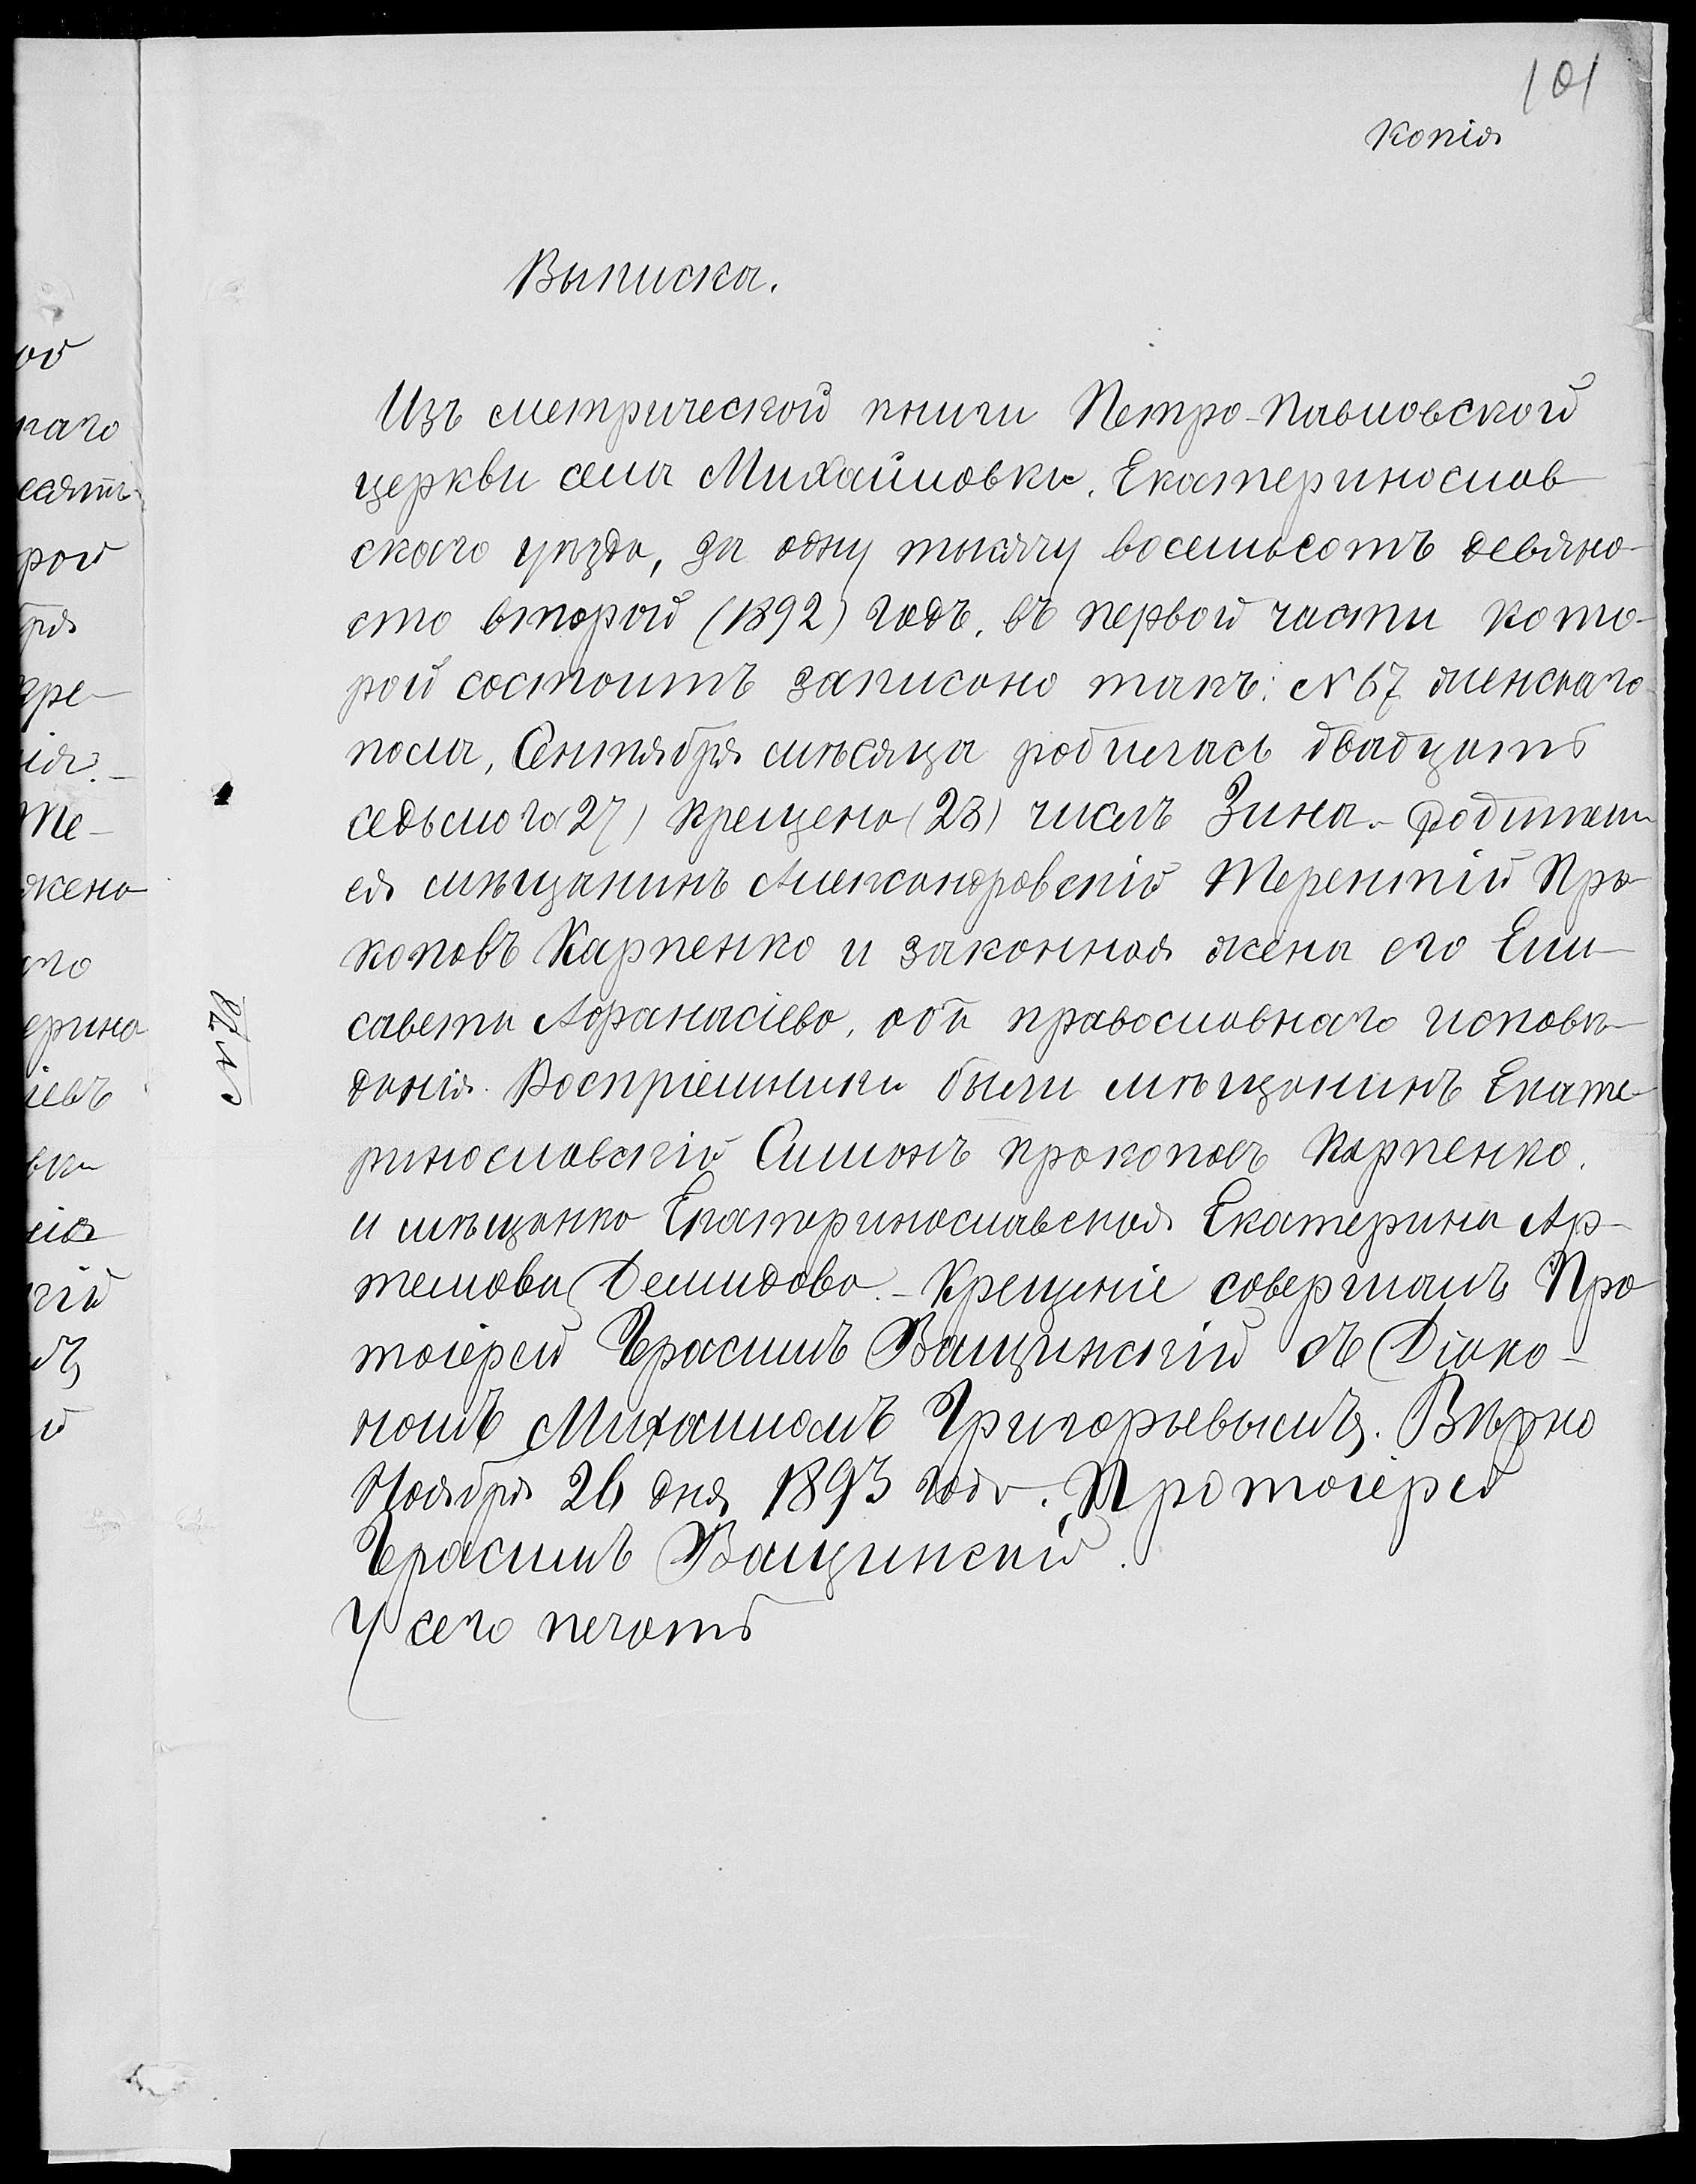 101
Копія
Выписка.
Изъ метрической книги Петро-Павловской
церкви села Михайловки, Екатеринослав
скаго уѣзда, за одну тысячу восемьсотъ девяно-
сто второй (1892) годъ, въ первой части кото-
рой состоитъ записано такъ: №67 женскаго
пола, Сентября мѣсяца родилась двадцать
седьмого (27) крещена (28) числъ Зина. - Родители
ея мѣщанинъ Александровскій Терентій Про-
коповъ Карпенко и законная жена его Ели-
савета Афанасіева, оба православнаго исповѣ-
данія. Воспріемники были мѣщанинъ Екате-
ринославскій Симонъ Прокоповъ Карпенко,
и мѣщанка Екатеринославская Екатерина Ар-
темова Демидова. - Крещеніе совершалъ Про
тоіерей Герасимъ Ващинскій съ Діако-
номъ Михаиломъ Григорьевымъ. Вѣрно
Ноября 26 дня 1893 года. Протоіерей
Герасимъ Ващинскій.
У сего печать
№ 78
наго
рой
бря
іи
жена
ерина
іевъ
вки